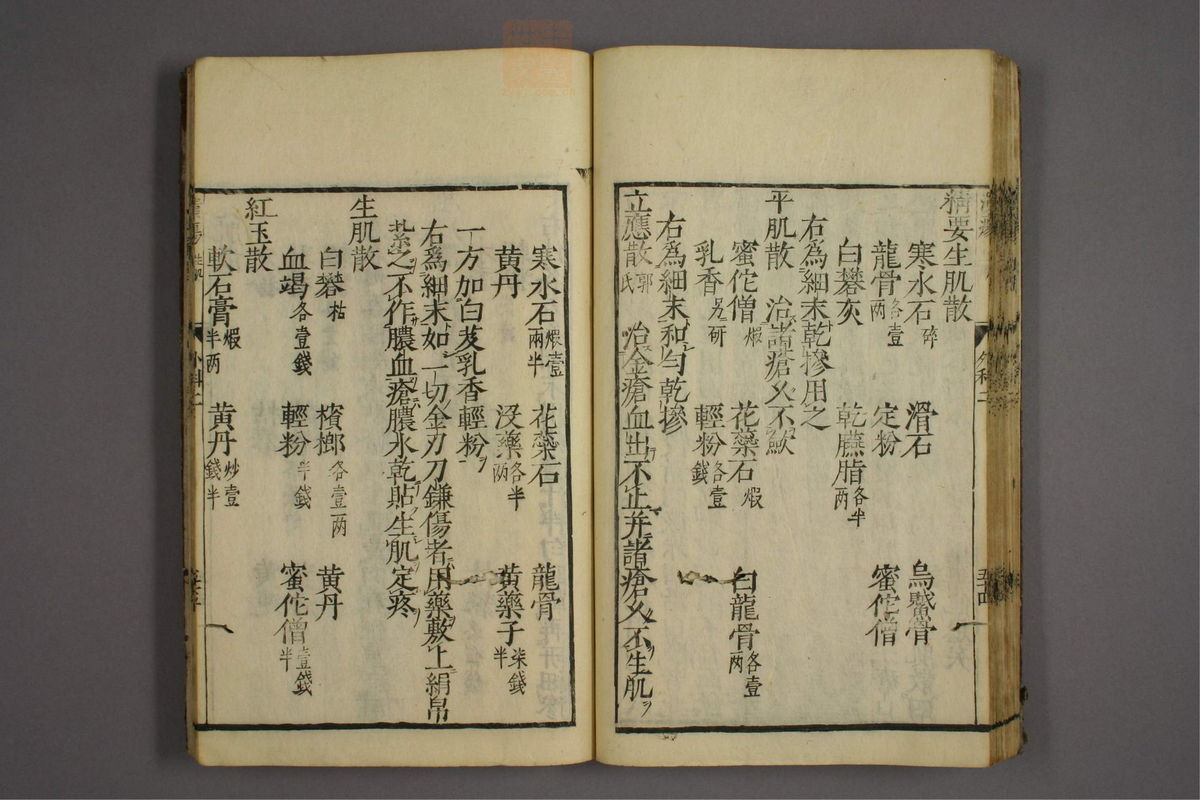 精要生肌散
寒水石碎 滑石 烏鰂骨
龍骨各壹兩 定粉 蜜佗僧
白礬灰 乾臙脂各半兩
右為細末乾摻用之
平肌散 治諸瘡久不歛
蜜佗僧煆 花蘂石煆 白龍骨各壹兩
乳香另研 輕粉各壹錢
右為細末和勻乾摻
立應散郭氏 治金瘡血出不止并諸瘡久不生肌
寒水石煆壹兩半 花蘂石 龍骨
黄丹 没藥各半兩 黄藥子柒錢半
一方加白芨乳香輕粉
右為細末如一切金刃刀鎌傷者用藥敷上絹帛
紮之不作膿血瘡膿水乾貼生肌定疼
生肌散
白礬枯 檳榔各壹兩 黄丹
血竭各壹錢 輕粉半錢 蜜佗僧壹錢半
紅玉散
軟石膏煆半兩 黄丹炒壹錢半